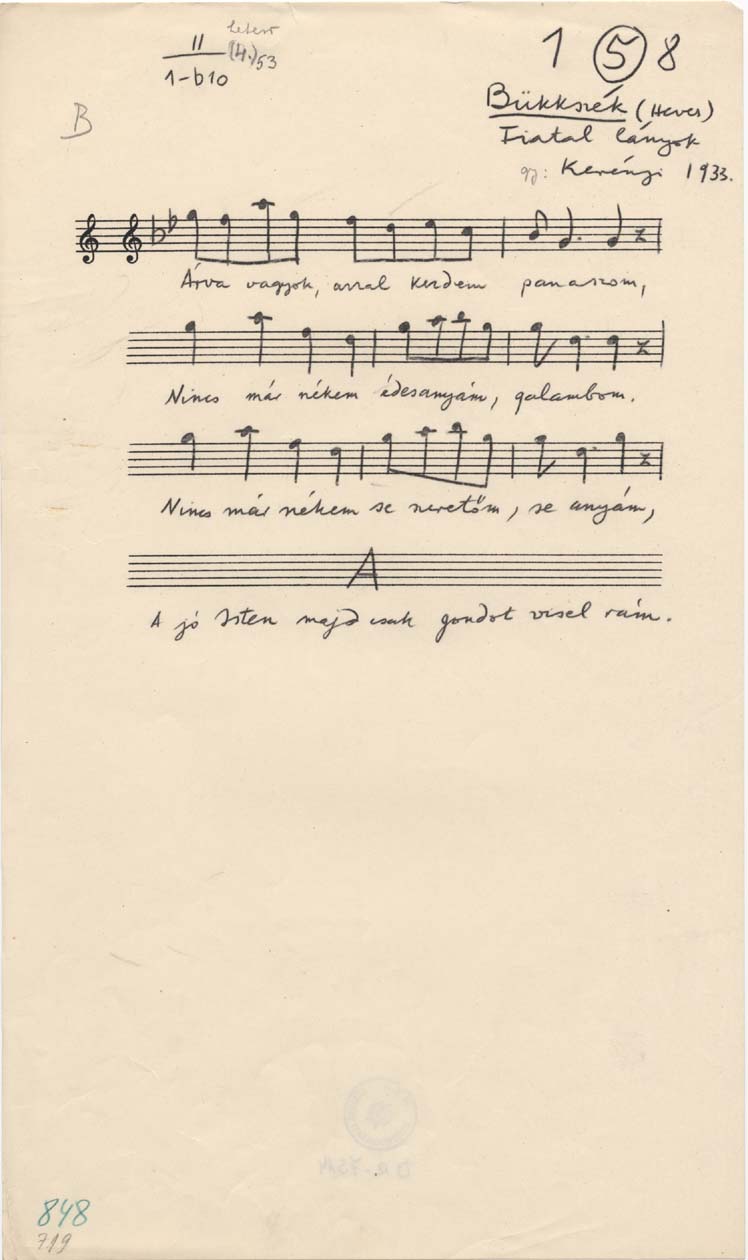 II
1-b10
(4.)53
1 5 8
Bükkszék (Heves)
Fiatal lányok
gy: Kerényi 1933.
B
Árva vagyok, azzal kezdem panaszom,
Nincs már nékem édesanyám, galambom.
Nincs már nékem se szeretőm, se anyám,
A
A jó Isten majd csak gondot visel rám.
848
719